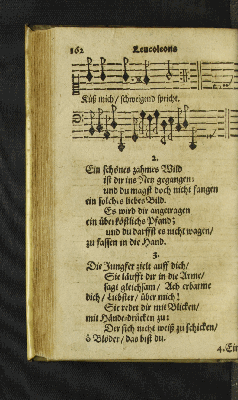 162 Leucoleons
Küß mich/ schweigend spricht.
2.
Ein schönes zahmes Wild
ist dir ins Netz gegangen:
und du magst doch nicht fangen
ein solches liebes Bild.
Es wird dir angetragen
ein überköstlichs Pfand;
und du darffst es nicht wagen/
zu fassen in die Hand.
3.
Die Jungfer zielt auff dich/
Sie läufft dir in die Arme/
sagt gleichsam/ Ach erbarme
dich/ Liebster/ über mich!
Sie redet dir mit Blicken/
mit Händedrücken zu:
Der sich nicht weiß zu schicken/
ô Blöder/ das bist du.
4. Ein